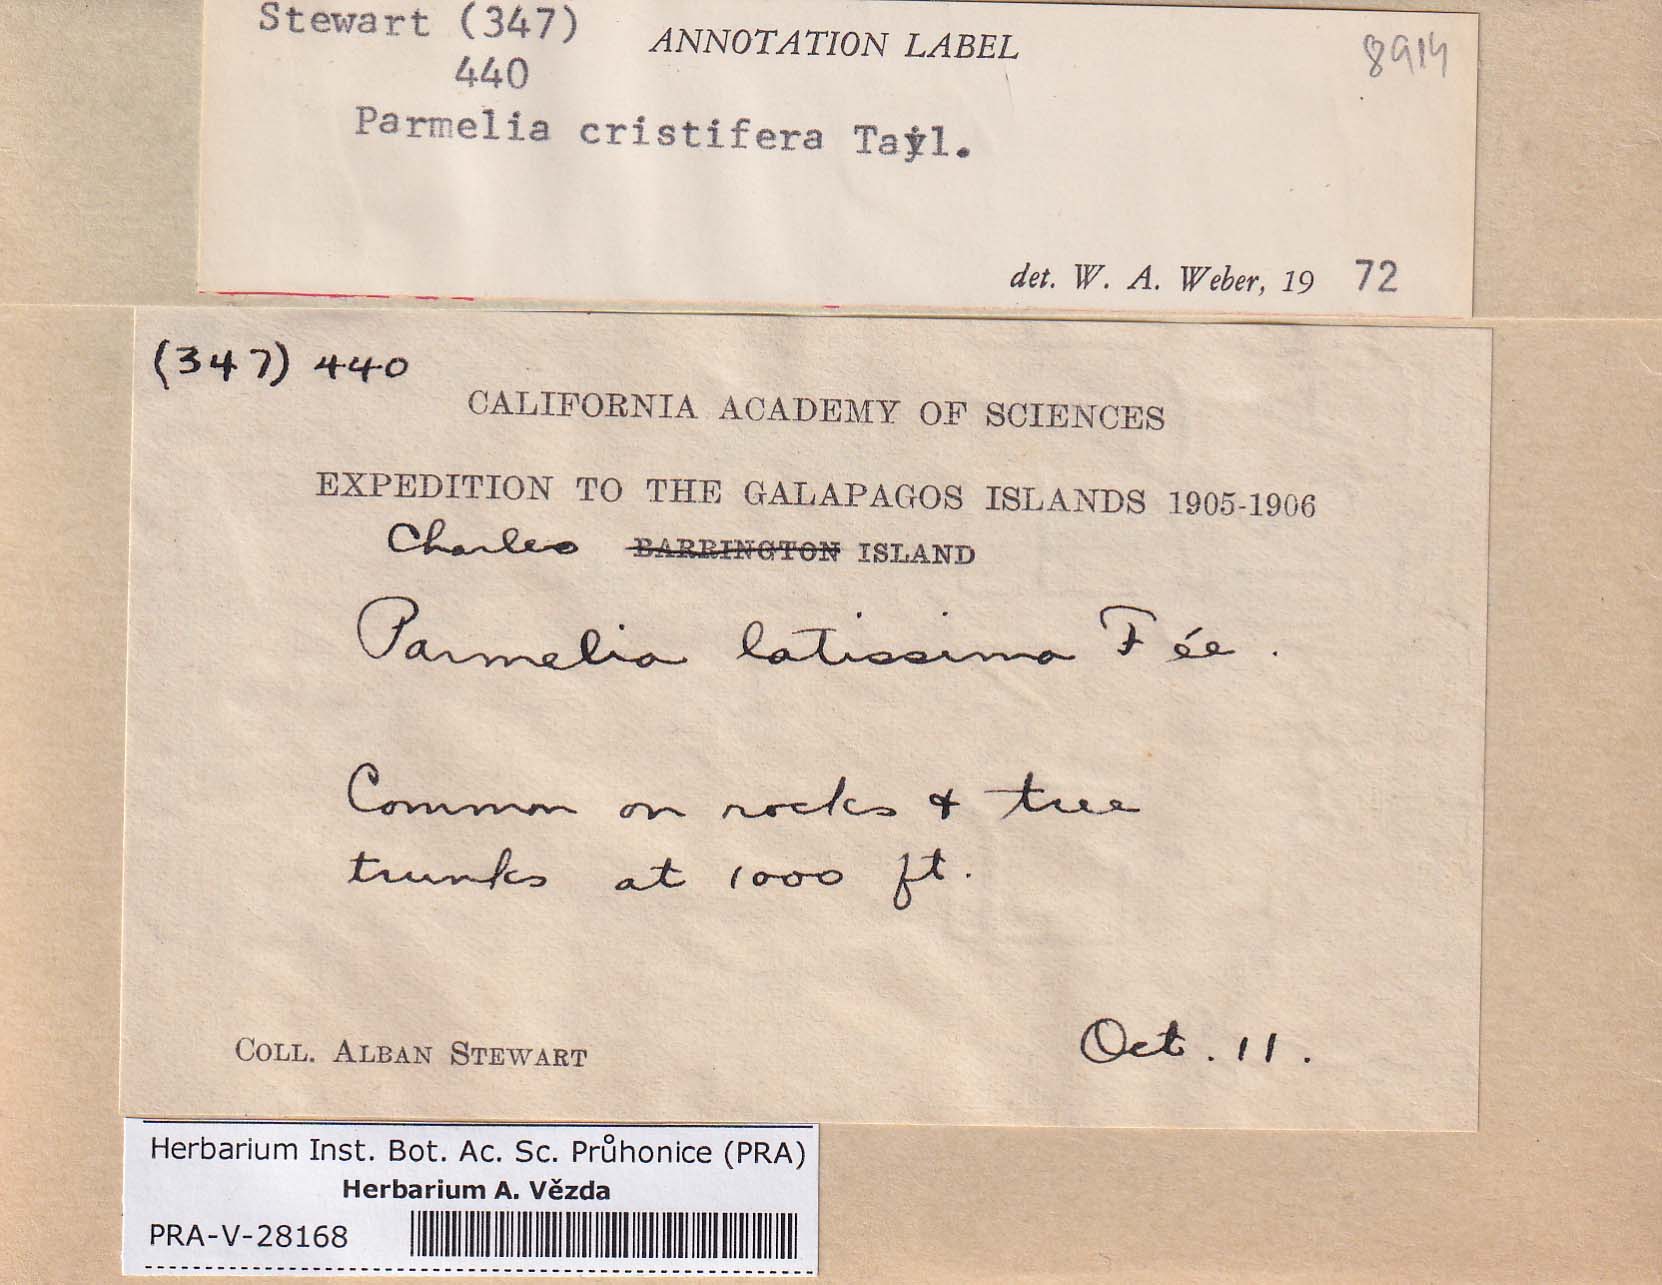 Stewart (347)
ANNOTATION LABEL
8914
440
Parmelia cristifera Tayl.
det. W. A. Weber, 19 72
(347) 440
CALIFORNIA ACADEMY OF SCIENCES
EXPEDITION TO THE GALAPAGOS ISLANDS 1905-1906
Charles BARRINGTON ISLAND
Parmelia latissima Fée.
Common on rocks & tree
trunks at 1000 ft.
COLL. ALBAN STEWART
Oct. 11.
Herbarium Inst. Bot. Ac. Sc. Průhonice (PRA)
Herbarium A. Vězda
PRA-V-28168